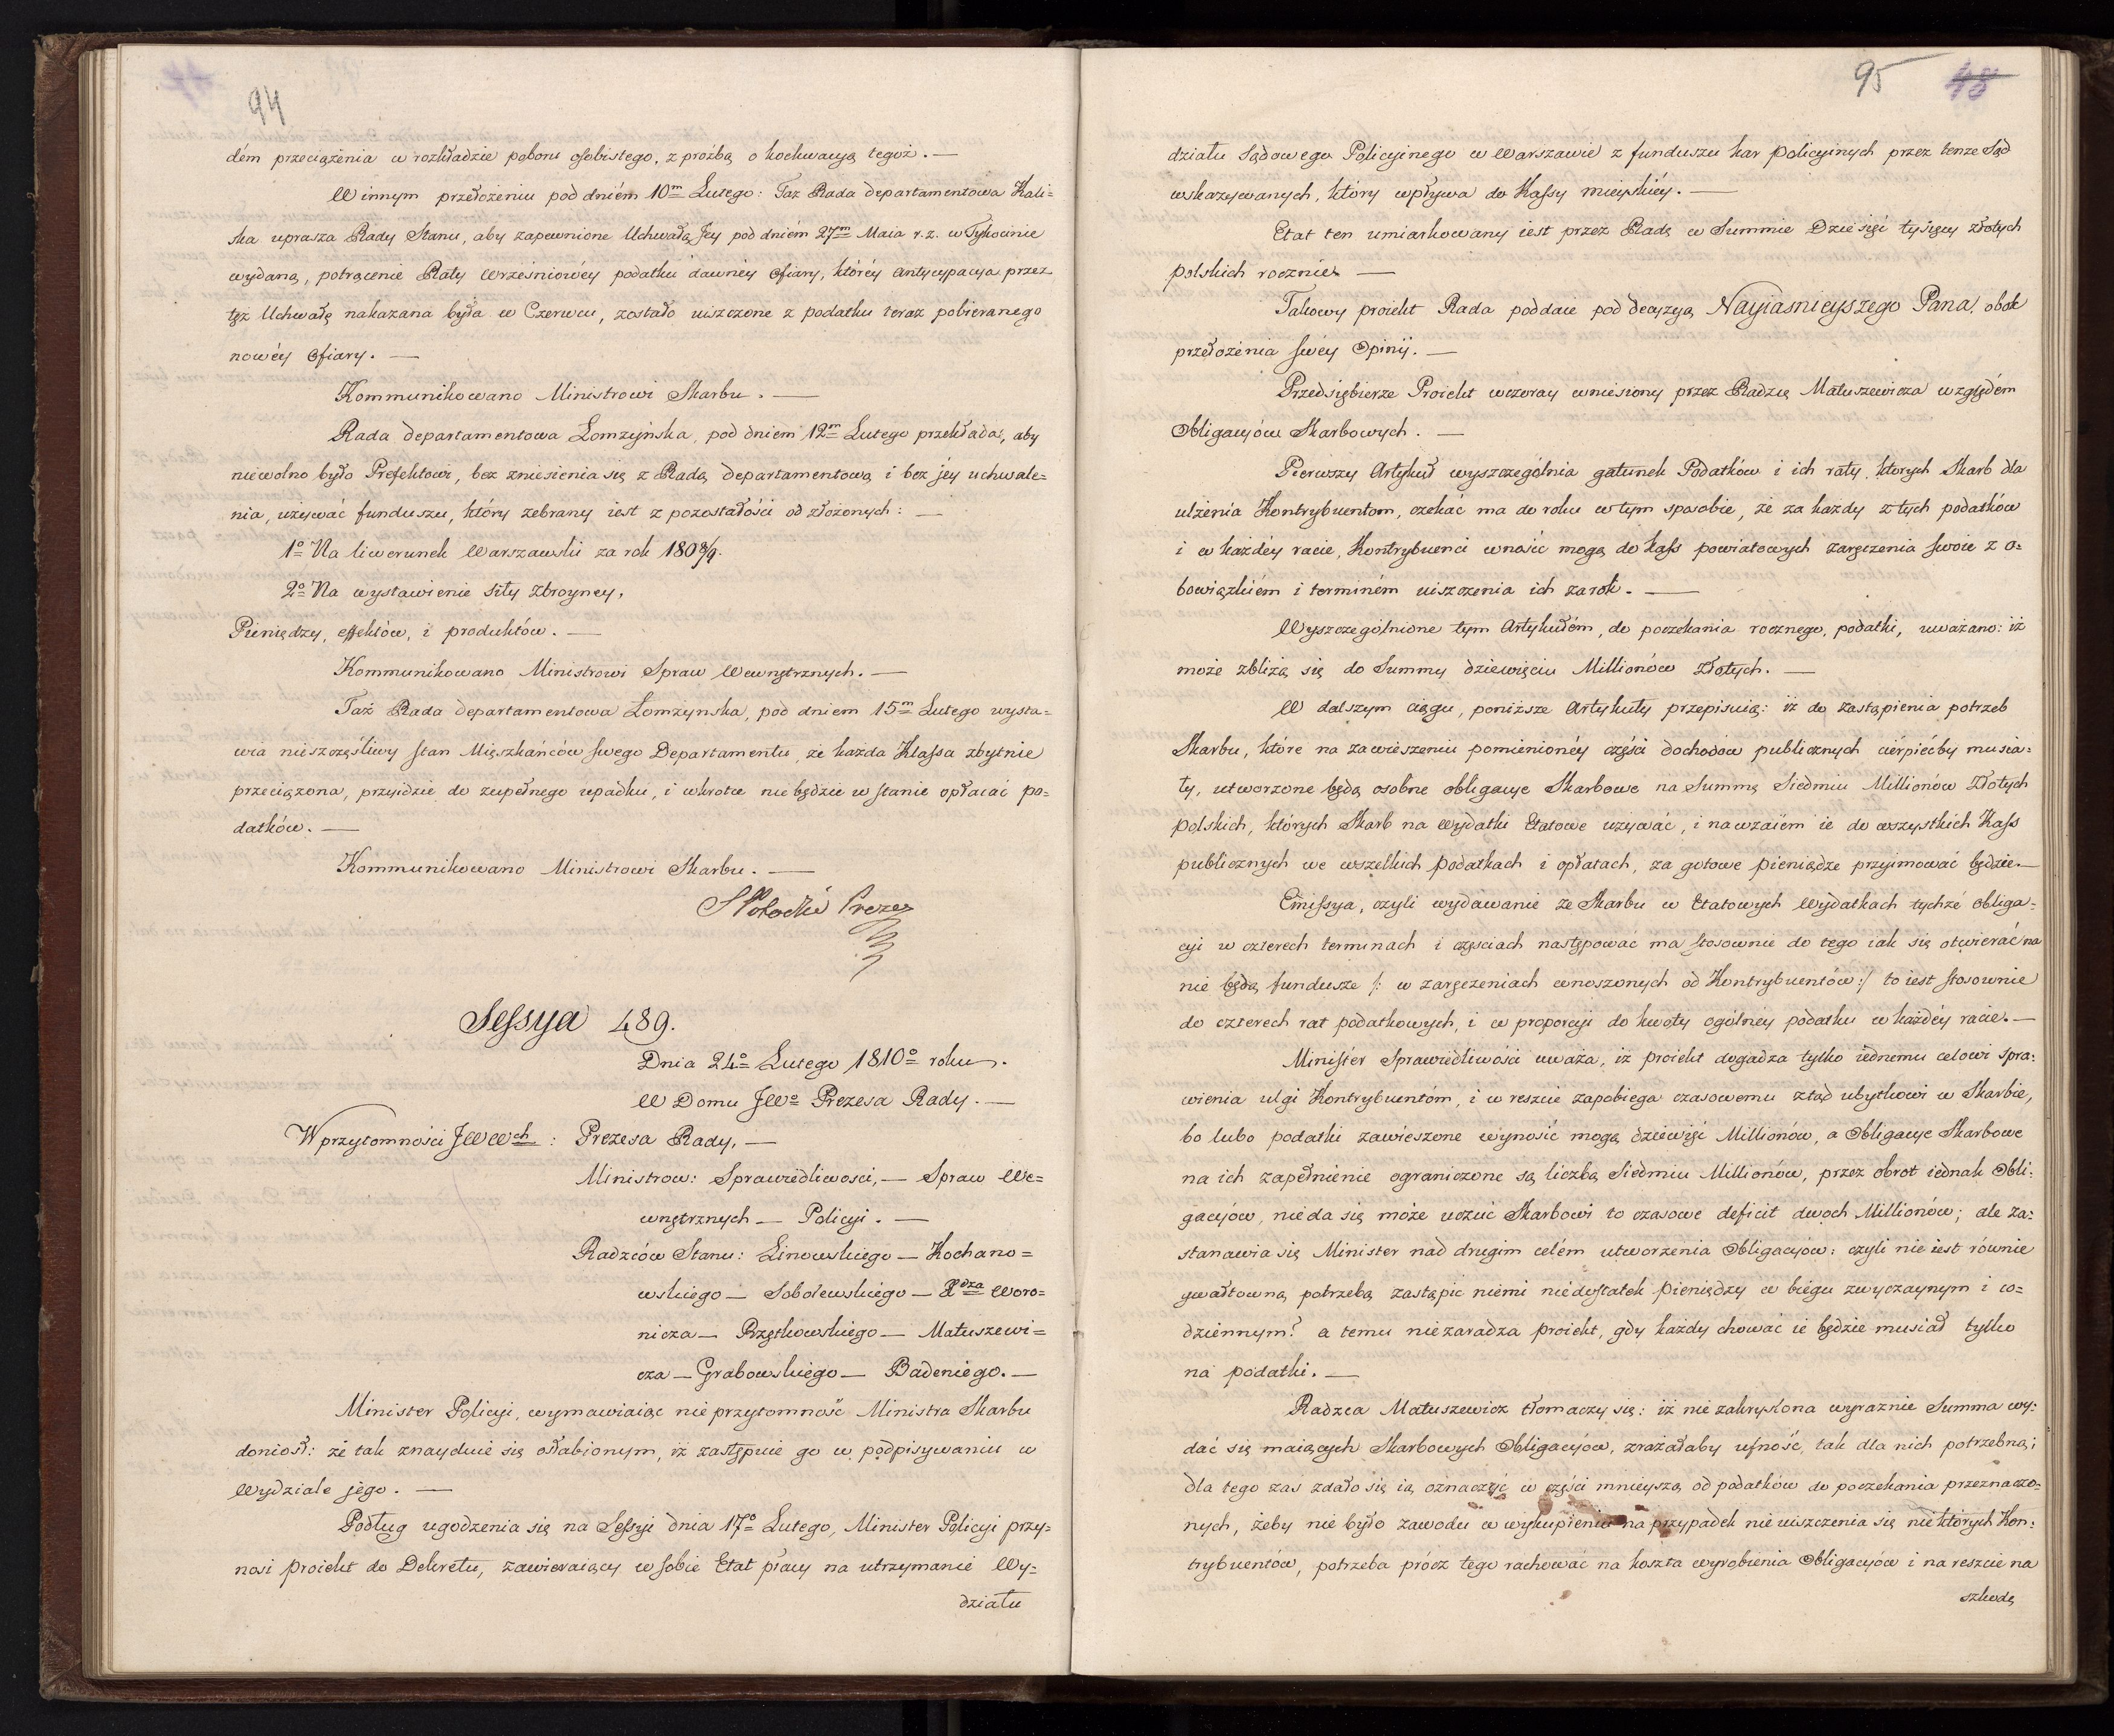 94
dém przeciążenia w rozkładzie poboru osobistego, z proźbą o kochwacyą tegoż. —
W innym przełożeniu pod dniém 10m Lutego: Taż Rada departamentowa Kali=
ska uprasza Rady Stanu, aby zapewnione Uchwałą Jey pod dniém 27m Maia r. z. w Tykocinie
wydaną, potrącenie Raty Wrześniowéy podatku dawnéy Ofiary, któréy antycypacya przez
tęż Uchwałę nakazana była w Czerwcu, zostało uiszczone z podatku teraz pobieranego
nowéy Ofiary. —
Kommunikowano Ministrowi Skarbu. —
Rada departamentowa Łomzyńska, pod dniem 12m Lutego przekłada, aby
niewolno było Prefektowi, bez zniesienia się z Radą departamentową i bez jéy uchwale=
nia, używać funduszu, który zebrany iest z pozostałości od złożonych: —
1o Na liwerunek Warszawski za rok 1808/9.
2o Na wystawienie siły zbroyney,
Pieniędzy, effektów, i produktów. —
Kommunikowano Ministrowi Spraw Wewnętrznych. —
Taż Rada departamentowa Łomzynska, pod dniem 15m Lutego wysta=
wia nieszczęśliwy stan Mieszkańców swego Departamentu, ze kazda Klassa zbytnie
przeciązona, przyidzie do zupełnego upadku, i wkrotce nie będzie w stanie opłacać po=
datków. —
Kommunikowano Ministrowi Skarbu. —
S Potocki Prezes
Sessya 489.
Dnia 24o Lutego 1810o roku.
W Domu JWo Prezesa Rady. —
W przytomności JWWch: Prezesa Rady, —
Ministrow: Sprawiedliwosci, — Spraw We=
wnętrznych — Policyi. —
Radzców Stanu: Linowskiego — Kochano=
wskiego — Sobolewskiego — Xdza Woro=
nicza — Rzętkowskiego — Matuszewi=
cza — Grabowskiego — Badeniego. —
Minister Policyi, wymawiaiąc nieprzytomność Ministra Skarbu
doniosł: że tak znayduie się osłabionym, iż zastępuie go w podpisywaniu w
Wydziale jego. —
Podług ugodzenia się na Sessyi dnia 17o Lutego, Minister Policyi przy=
nosi proiekt do Dekretu, zawieraiący w sobie Etat płacy na utrzymanie Wy=
działu
95 48
działu Sądowego Policyinego w Warszawie z funduszu kar policyinych przez tenze Sąd
wskazywanych, który wpływa do Kassy mieyskiéy. —
Etat ten umiarkowany iest przez Radę w Summie Dziesięć tysięcy złotych
polskich rocznie. —
Takowy proiekt Rada poddaie pod decyzyą Nayiasnieyszego Pana, obok
przełożenia swéy Opinii. —
Przedsiębierze Proiekt wczoray wniesiony przez Radzcę Matuszewicza względem
Obligacyów Skarbowych. —
Pierwszy Artykuł wyszczególnia gatunek Podatków i ich raty, ktorych Skarb dla
ulżenia Kontrybuentom, czekać ma do roku w tym sposobie, że za każdy z tych podatków
i w każdéy racie, Kontrybuenci wnosić mogą do Kass powiatowych zaręczenia swoie z o=
bowiązkiém i terminém uiszczenia ich za rok. —
Wyszczególnione tym Artykułém, do poczekania rocznego, podatki, uważano: iż
może zbliżą się do Summy dziewięciu Millionów Złotych. —
W dalszym ciągu, poniższe Artykuły przepisuią: iż do zastąpienia potrzeb
Skarbu, które na zawieszeniu pomienionéy części dochodów publicznych cierpiećby musia=
ły, utworzone będą osobne obligacye Skarbowe na Summę Siedmiu Millionów Złotych
polskich, których Skarb na wydatki Etatowe używać, i nawzaiem ie do wszystkich Kass
publicznych we wszelkich podatkach i opłatach, za gotowe pieniądze przyimować będzie. —
Emissya, czyli wydawanie ze Skarbu w Etatowych Wydatkach tychże obliga=
cyi w czterech terminach i częsciach następować ma stosownie do tego iak się otwierać na
nie będą fundusze /: w zaręczeniach wnoszonych od Kontrybuentów :/ to iest stosownie
do czterech rat podatkowych, i w proporcyi do kwoty ogólnéy podatku w każdéy racie. —
Minister Sprawiedliwości uważa, iż proiekt dogadza tylko iednemu celowi spra=
wienia ulgi Kontrybuentóm, i w reszcie zapobiega czasowemu ztąd ubytkowi w Skarbie,
bo lubo podatki zawieszone wynosić mogą dziewięć Millionów, a Obligacye Skarbowe
na ich zapełnienie ograniczone są liczbą Siedmiu Millionów, przez obrot iednak Obli=
gacyów, nieda się może uczuć Skarbowi to czasowe deficit dwoch Millionów; ale za=
stanawia się Minister nad drugim celém utworzenia Obligacyów: czyli nie iest równie
gwałtowną potrzebą zastąpić niemi niedostatek pieniędzy w biegu zwyczaynym i co=
dziennym? a temu niezaradza proiekt, gdy każdy chować ie będzie musiał tylko
na podatki. —
Radzca Matuszewicz tłomaczy się: iż nie zakryslona wyraznie Summa wy=
dać się maiących Skarbowych Obligacyów, zrażałaby ufność, tak dla nich potrzebną;
dla tego zas zdało się ią oznaczyć w części mnieyszą od podatków do poczekania przeznaczo=
nych, żeby nie było zawodu w wykupieniu na przypadek nieuiszczenia się niektórych Kon=
trybuentów, potrzeba prócz tego rachować na koszta wyrobienia Obligacyów i na reszcie na
szkodę